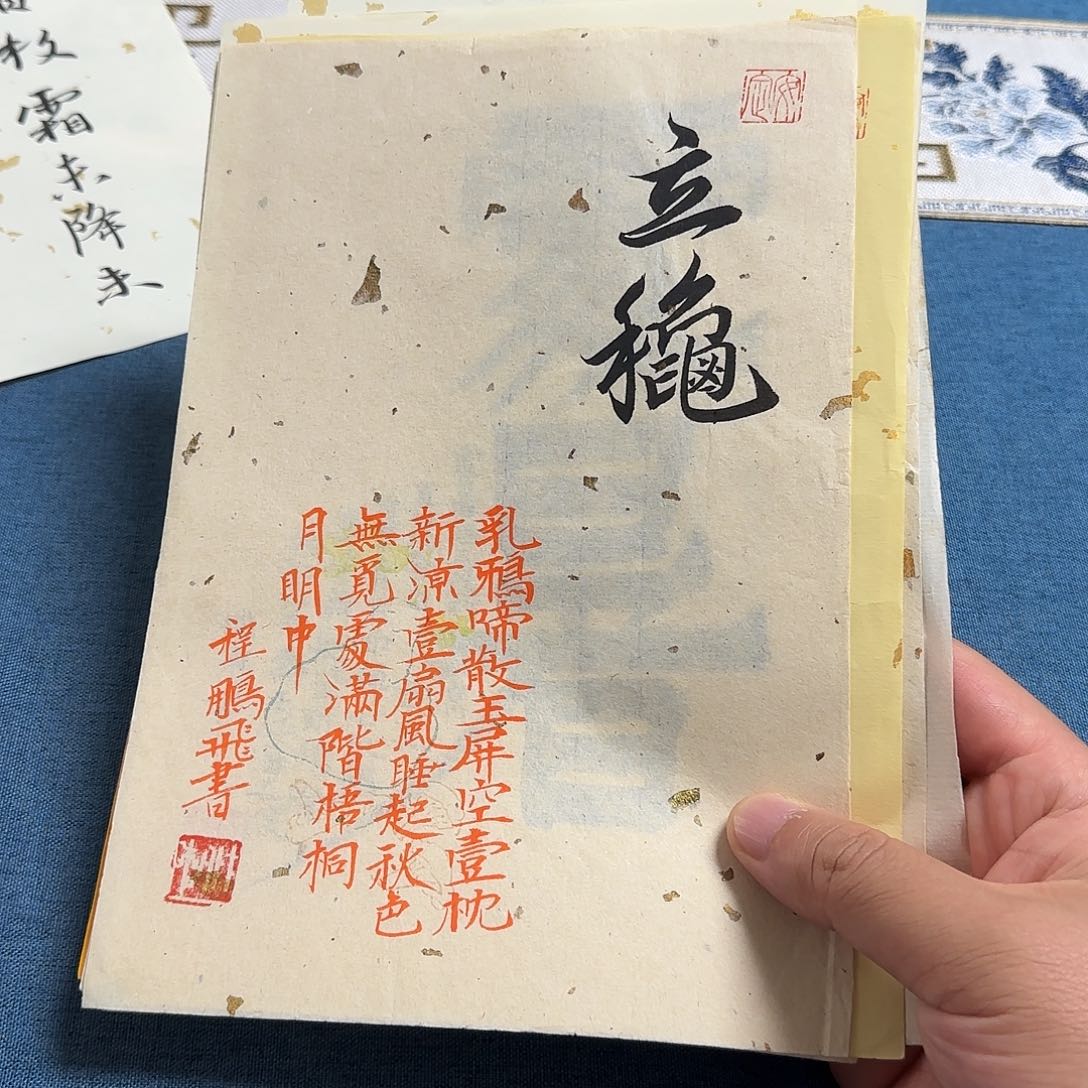 立龝
乳鴉啼散玉屏空壹枕
新涼壹扇風睡起秋色
無覓處滿階梧桐
月明中
程鵬飛書
安定
霜未降未